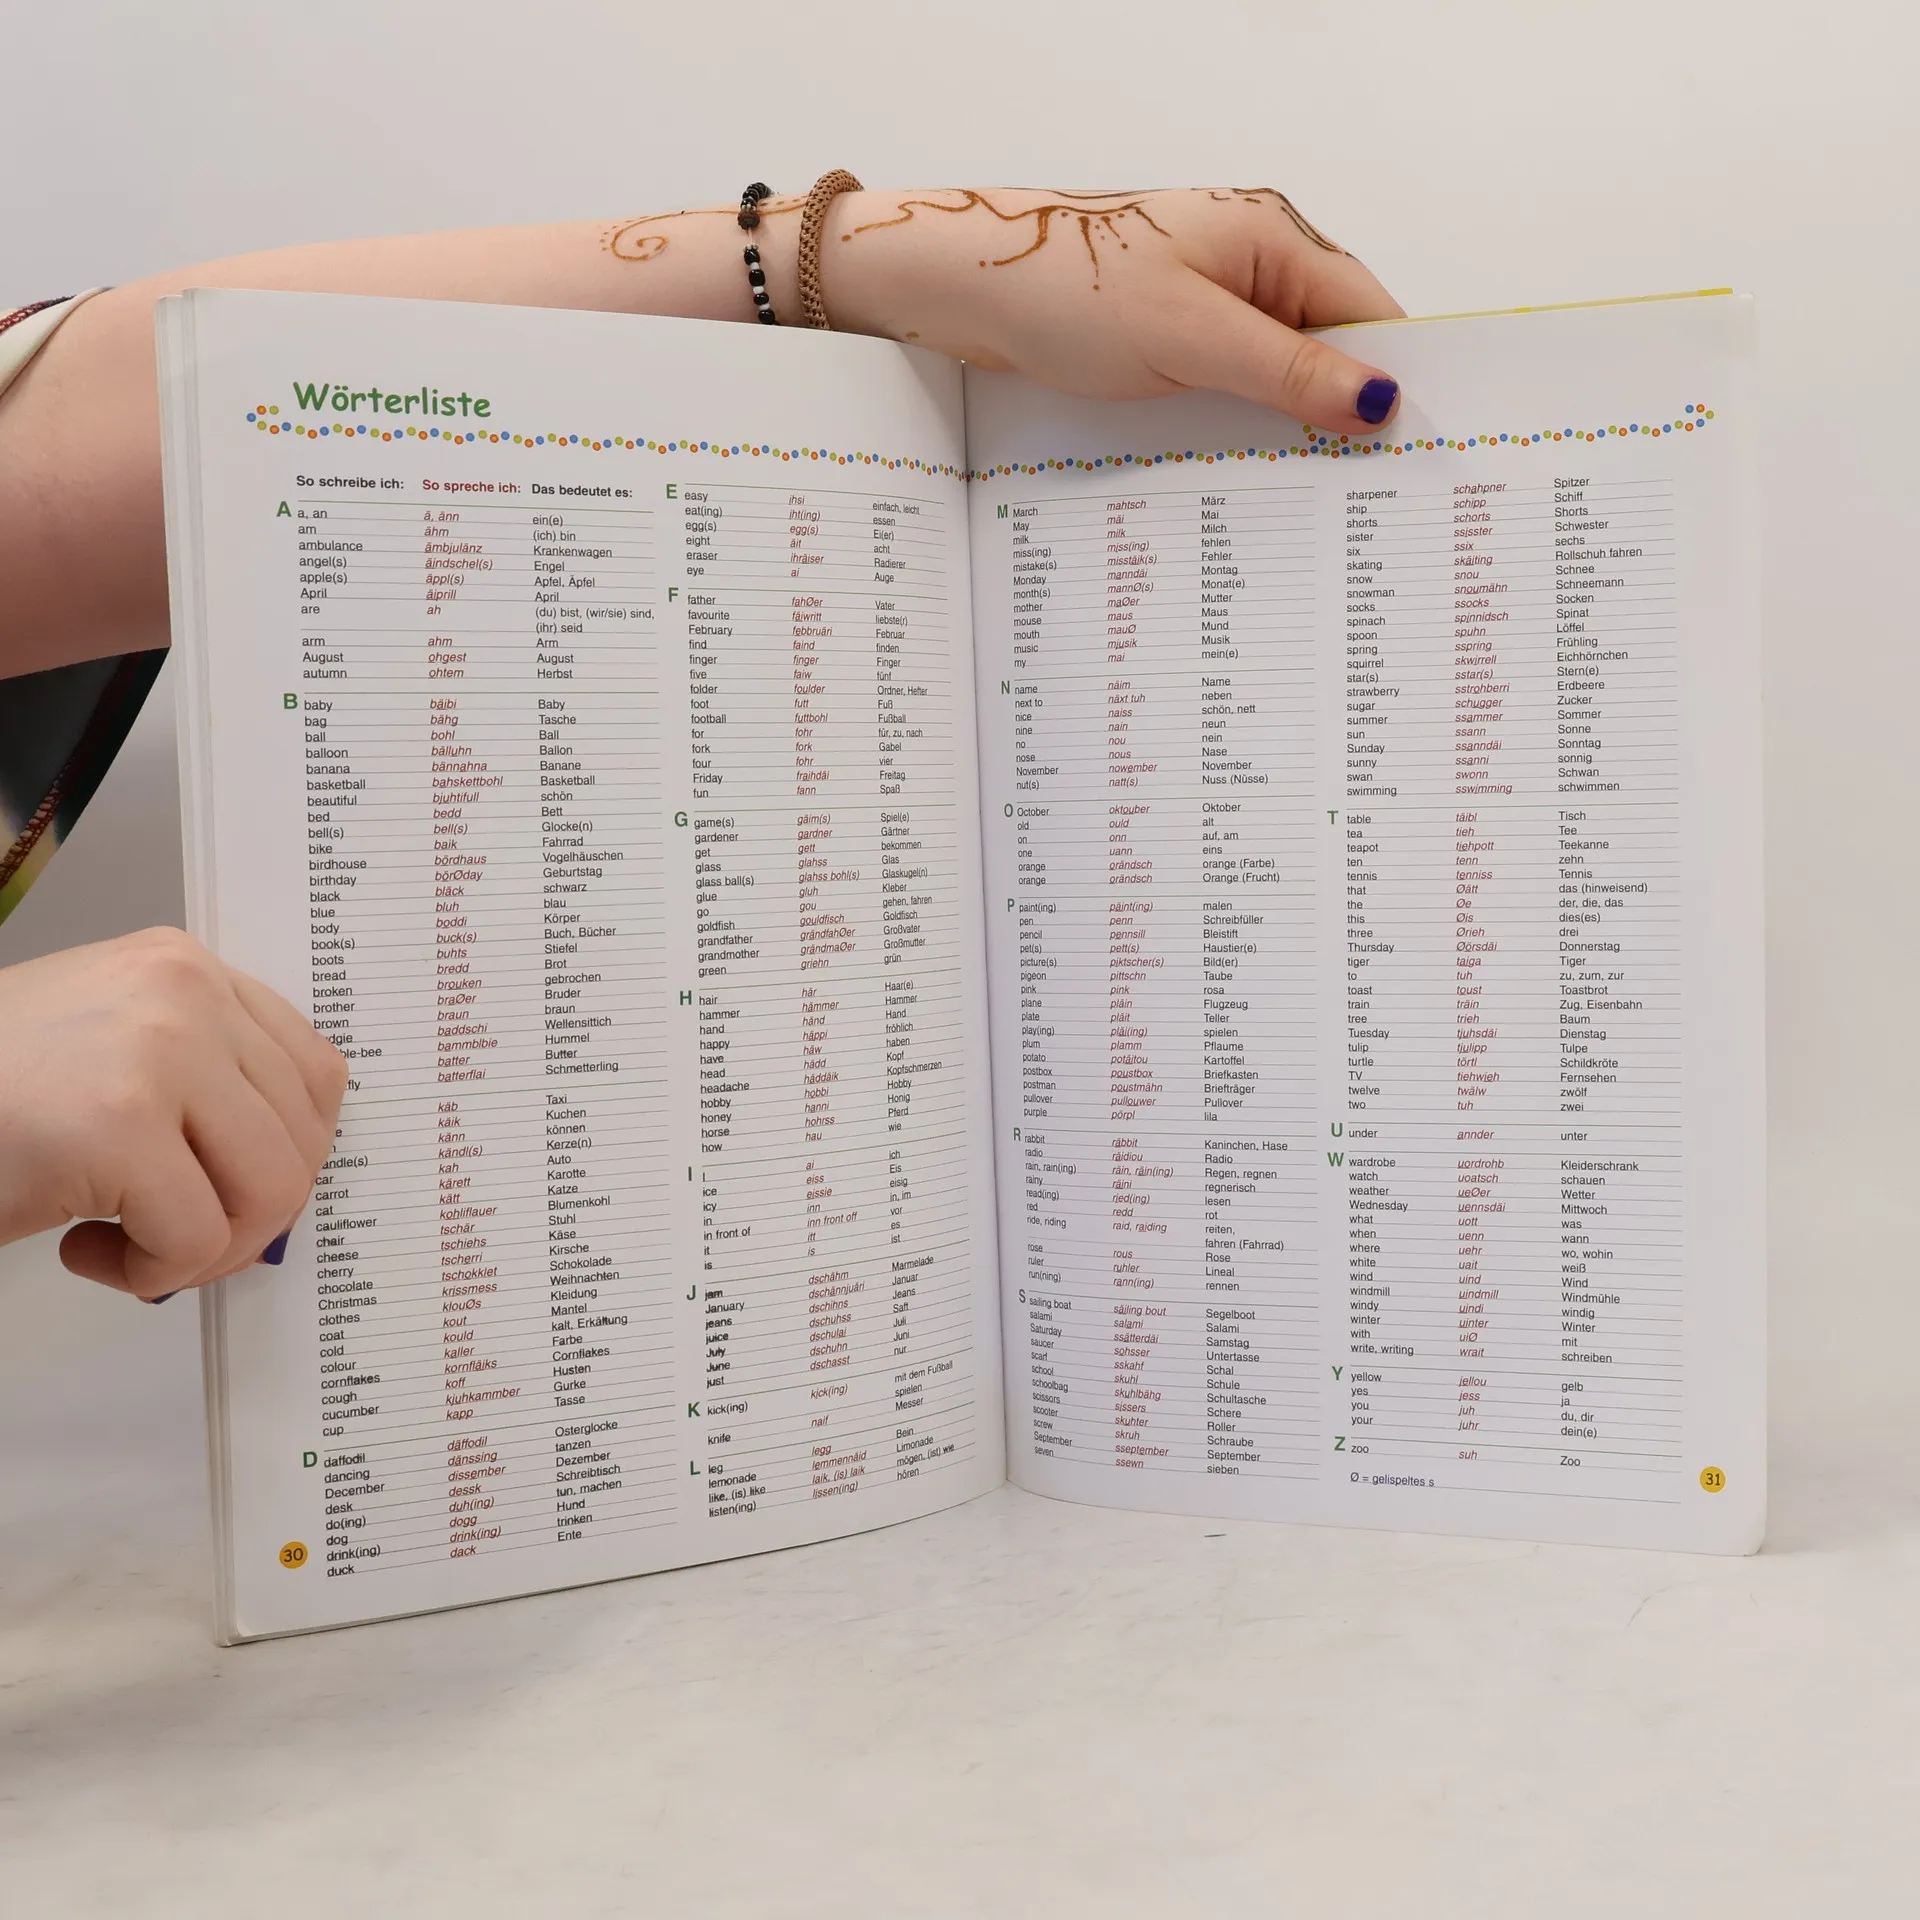 Wörterliste
So schreibe ich: So spreche ich: Das bedeutet es:
A a, an ä, änn ein(e)
am ähm (ich) bin
ambulance ämbjulänz Krankenwagen
angel(s) äindschel(s) Engel
apple(s) äppl(s) Apfel, Äpfel
April äiprill April
are ah (du) bist, (wir/sie) sind,
(ihr) seid
arm ahm Arm
August ohgest August
autumn ohtem Herbst
B baby bäibi Baby
bag bähg Tasche
ball bohl Ball
balloon bälluhn Ballon
banana bännahna Banane
basketball bahskettbohl Basketball
beautiful bjuhtifull schön
bed bedd Bett
bell(s) bell(s) Glocke(n)
bike baik Fahrrad
birdhouse bördhaus Vogelhäuschen
birthday börØday Geburtstag
black bläck schwarz
blue bluh blau
body boddi Körper
book(s) buck(s) Buch, Bücher
boots buhts Stiefel
bread bredd Brot
broken brouken gebrochen
brother braØer Bruder
brown braun braun
dgie baddschi Wellensittich
ble-bee bammblbie Hummel
batter Butter
fly batterflai Schmetterling
käb Taxi
e käik Kuchen
känn können
andle(s) kändl(s) Kerze(n)
car kah Auto
carrot kärett Karotte
cat kätt Katze
cauliflower kohliflauer Blumenkohl
chair tschär Stuhl
cheese tschiehs Käse
cherry tscherri Kirsche
chocolate tschokklet Schokolade
Christmas krissmess Weihnachten
clothes klouØs Kleidung
coat kout Mantel
cold kould kalt, Erkältung
colour kaller Farbe
cornflakes kornfläiks Cornflakes
cough koff Husten
cucumber kjuhkammber Gurke
cup kapp Tasse
D daffodil däffodil Osterglocke
dancing dänssing tanzen
December dissember Dezember
desk dessk Schreibtisch
do(ing) duh(ing) tun, machen
dog dogg Hund
drink(ing) drink(ing) trinken
duck dack Ente
30
E easy ihsi einfach, leicht
eat(ing) iht(ing) essen
egg(s) egg(s) Ei(er)
eight äit acht
eraser ihräiser Radierer
eye ai Auge
F father fahØer Vater
favourite fäiwritt liebste(r)
February febbruäri Februar
find faind finden
finger finger Finger
five faiw fünf
folder foulder Ordner, Hefter
foot futt Fuß
football futtbohl Fußball
for fohr für, zu, nach
fork fork Gabel
four fohr vier
Friday fraihdäi Freitag
fun fann Spaß
G game(s) gäim(s) Spiel(e)
gardener gardner Gärtner
get gett bekommen
glass glahss Glas
glass ball(s) glahss bohl(s) Glaskugel(n)
glue gluh Kleber
go gou gehen, fahren
goldfish gouldfisch Goldfisch
grandfather grändfahØer Großvater
grandmother grändmaØer Großmutter
green griehn grün
H hair här Haar(e)
hammer hämmer Hammer
hand händ Hand
happy häppi fröhlich
have häw haben
head hädd Kopf
headache häddäik Kopfschmerzen
hobby hobbi Hobby
honey hanni Honig
horse hohrss Pferd
how hau wie
I I ai ich
ice eiss Eis
icy eissie eisig
in inn in, im
in front of inn front off vor
it itt es
is is ist
J jam dschähm Marmelade
January dschännjuäri Januar
jeans dschihns Jeans
juice dschuhss Saft
July dschulai Juli
June dschuhn Juni
just dschasst nur
K kick(ing) kick(ing) mit dem Fußball
spielen
knife naif Messer
L leg legg Bein
lemonade lemmennäid Limonade
like, (is) like laik, (is) laik mögen, (ist) wie
listen(ing) lissen(ing) hören
M March mahtsch März
May mäi Mai
milk milk Milch
miss(ing) miss(ing) fehlen
mistake(s) misstäik(s) Fehler
Monday manndäi Montag
month(s) mannØ(s) Monat(e)
mother maØer Mutter
mouse maus Maus
mouth mauØ Mund
music mjusik Musik
my mai mein(e)
N name näim Name
next to näxt tuh neben
nice naiss schön, nett
nine nain neun
no nou nein
nose nous Nase
November november November
nut(s) natt(s) Nuss (Nüsse)
O October oktouber Oktober
old ould alt
on onn auf, am
one uann eins
orange orändsch orange (Farbe)
orange orändsch Orange (Frucht)
P paint(ing) päint(ing) malen
pen penn Schreibfüller
pencil pennsill Bleistift
pet(s) pett(s) Haustier(e)
picture(s) piktscher(s) Bild(er)
pigeon pittschn Taube
pink pink rosa
plane pläin Flugzeug
plate pläit Teller
play(ing) pläi(ing) spielen
plum plamm Pflaume
potato potäitou Kartoffel
postbox poustbox Briefkasten
postman poustmähn Briefträger
pullover pullouwer Pullover
purple pörpl lila
R rabbit räbbit Kaninchen, Hase
radio räidiou Radio
rain, rain(ing) räin, räin(ing) Regen, regnen
rainy räini regnerisch
read(ing) ried(ing) lesen
red redd rot
ride, riding raid, raiding reiten,
fahren (Fahrrad)
rose rous Rose
ruler ruhler Lineal
run(ning) rann(ing) rennen
S sailing boat säiling bout Segelboot
salami salami Salami
Saturday ssätterdäi Samstag
saucer sohsser Untertasse
scarf sskahf Schal
school skuhl Schule
schoolbag skuhlbähg Schultasche
scissors sissers Schere
scooter skuhter Roller
screw skruh Schraube
September sseptember September
seven ssewn sieben
sharpener schahpner Spitzer
ship schipp Schiff
shorts schorts Shorts
sister ssisster Schwester
six ssix sechs
skating skäiting Rollschuh fahren
snow snou Schnee
snowman snoumähn Schneemann
socks ssocks Socken
spinach spinnidsch Spinat
spoon spuhn Löffel
spring sspring Frühling
squirrel skwirrell Eichhörnchen
star(s) sstar(s) Stern(e)
strawberry sstrohberri Erdbeere
sugar schugger Zucker
summer ssammer Sommer
sun ssann Sonne
Sunday ssanndäi Sonntag
sunny ssanni sonnig
swan swonn Schwan
swimming sswimming schwimmen
T table täibl Tisch
tea tieh Tee
teapot tiehpott Teekanne
ten tenn zehn
tennis tenniss Tennis
that Øätt das (hinweisend)
the Øe der, die, das
this Øis dies(es)
three Ørieh drei
Thursday Øörsdäi Donnerstag
tiger taiga Tiger
to tuh zu, zum, zur
toast toust Toastbrot
train träin Zug, Eisenbahn
tree trieh Baum
Tuesday tjuhsdäi Dienstag
tulip tjulipp Tulpe
turtle törtl Schildkröte
TV tiehwieh Fernsehen
twelve twälw zwölf
two tuh zwei
U under annder unter
W wardrobe uordrohb Kleiderschrank
watch uoatsch schauen
weather ueØer Wetter
Wednesday uennsdäi Mittwoch
what uott was
when uenn wann
where uehr wo, wohin
white uait weiß
wind uind Wind
windmill uindmill Windmühle
windy uindi windig
winter uinter Winter
with uiØ mit
write, writing wrait schreiben
Y yellow jellou gelb
yes jess ja
you juh du, dir
your juhr dein(e)
Z zoo suh Zoo
Ø = gelispeltes s
31